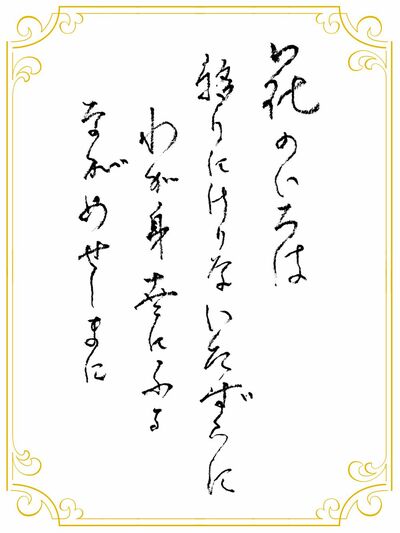 花のいろは
移りにけりないたづらに
わが身世にふる
ながめせしまに